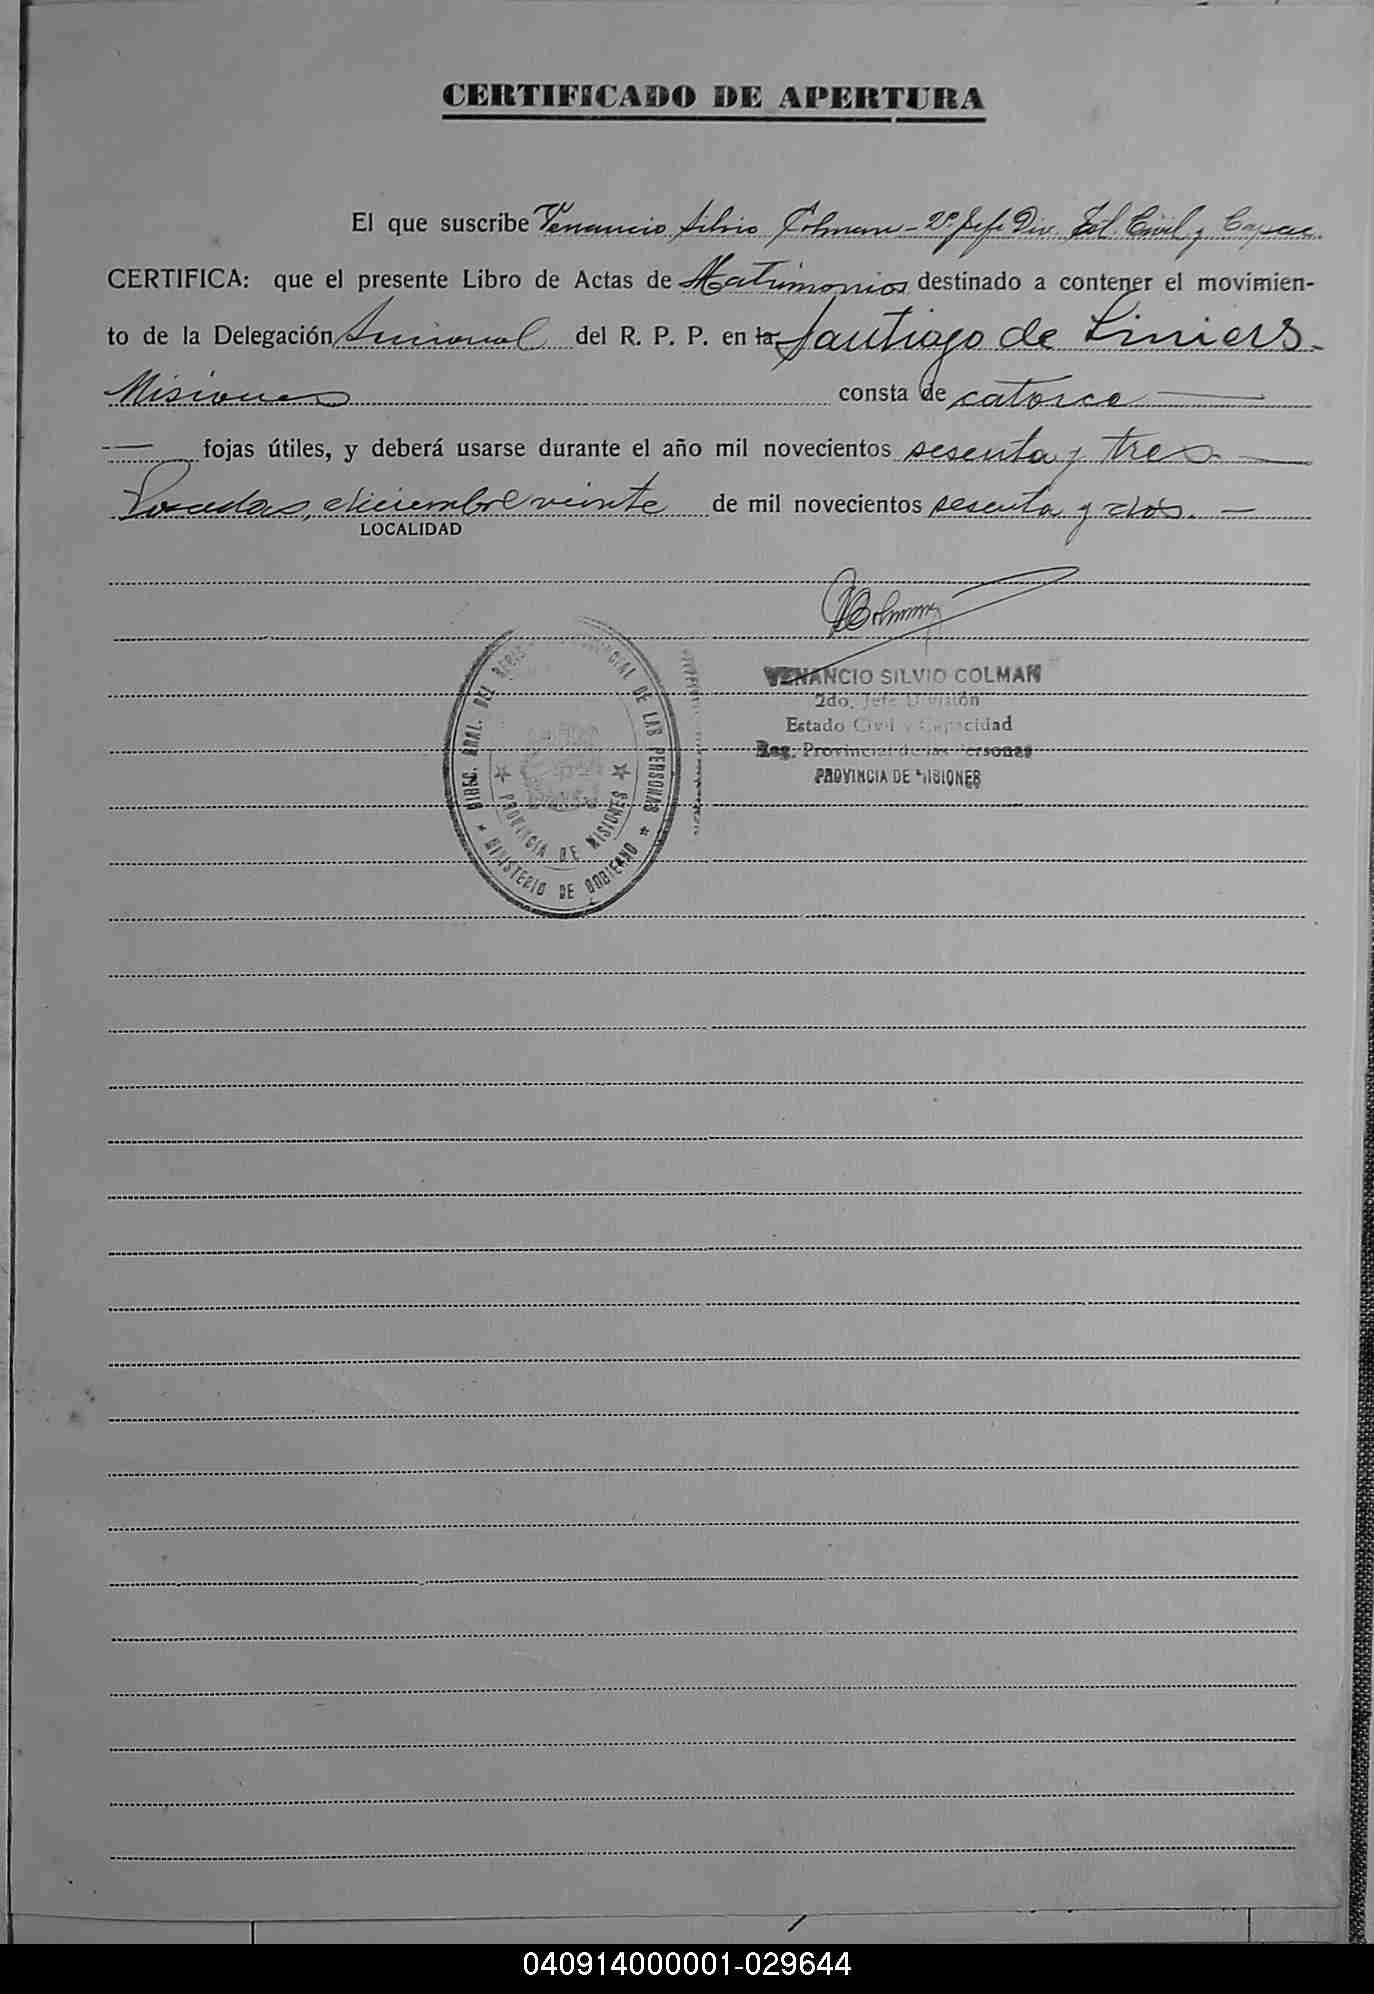 CERTIFICADO DE APERTURA
El que suscribe Venancio Silvio Colman - 2º Jefe Div. Est. Civil y Capac.
CERTIFICA: que el presente Libro de Actas de Matrimonios destinado a contener el movimien-
to de la Delegación Seccional del R. P. P. en la Santiago de Liniers -
Misiones consta de catorce —
— fojas útiles, y deberá usarse durante el año mil novecientos sesenta y tres —
Posadas, diciembre veinte de mil novecientos sesenta y dos. —
LOCALIDAD
VENANCIO SILVIO COLMAN
2do. Jefe División
Estado Civil y Capacidad
Reg. Provincial de las Personas
PROVINCIA DE MISIONES
DIREC. GRAL. DEL REGIS PROVINCIAL DE LAS PERSONAS
* MINISTERIO DE GOBIERNO *
PROVINCIA DE MISIONES
040914000001-029644